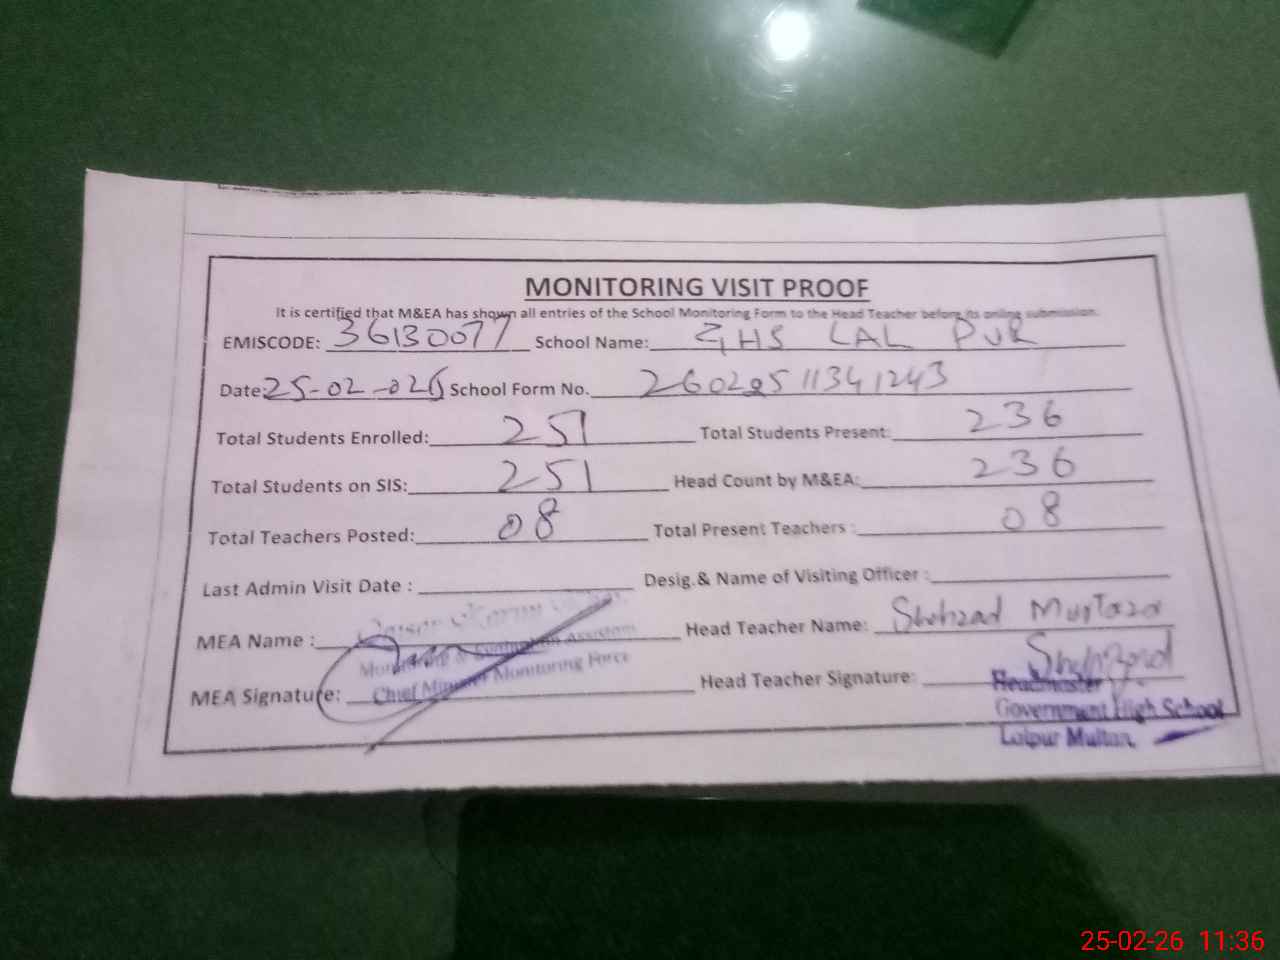 MONITORING VISIT PROOF
It is certified that M&EA has shown all entries of the School Monitoring Form to the Head Teacher before its online submission.
EMISCODE: 36130077 School Name: GHS LAL PUR
Date: 25-02-026 School Form No. 26022511341243
Total Students Enrolled: 251 Total Students Present: 236
Total Students on SIS: 251 Head Count by M&EA: 236
Total Teachers Posted: 08 Total Present Teachers : 08
Last Admin Visit Date : Desig.& Name of Visiting Officer :
MEA Name : Head Teacher Name: Shahzad Murtaza
Monitoring & Evaluation Assistant
MEA Signature: Chief Minister Monitoring Force Head Teacher Signature: Shahzad
Headmaster
Government High School
Lalpur Multan.
25-02-26 11:36